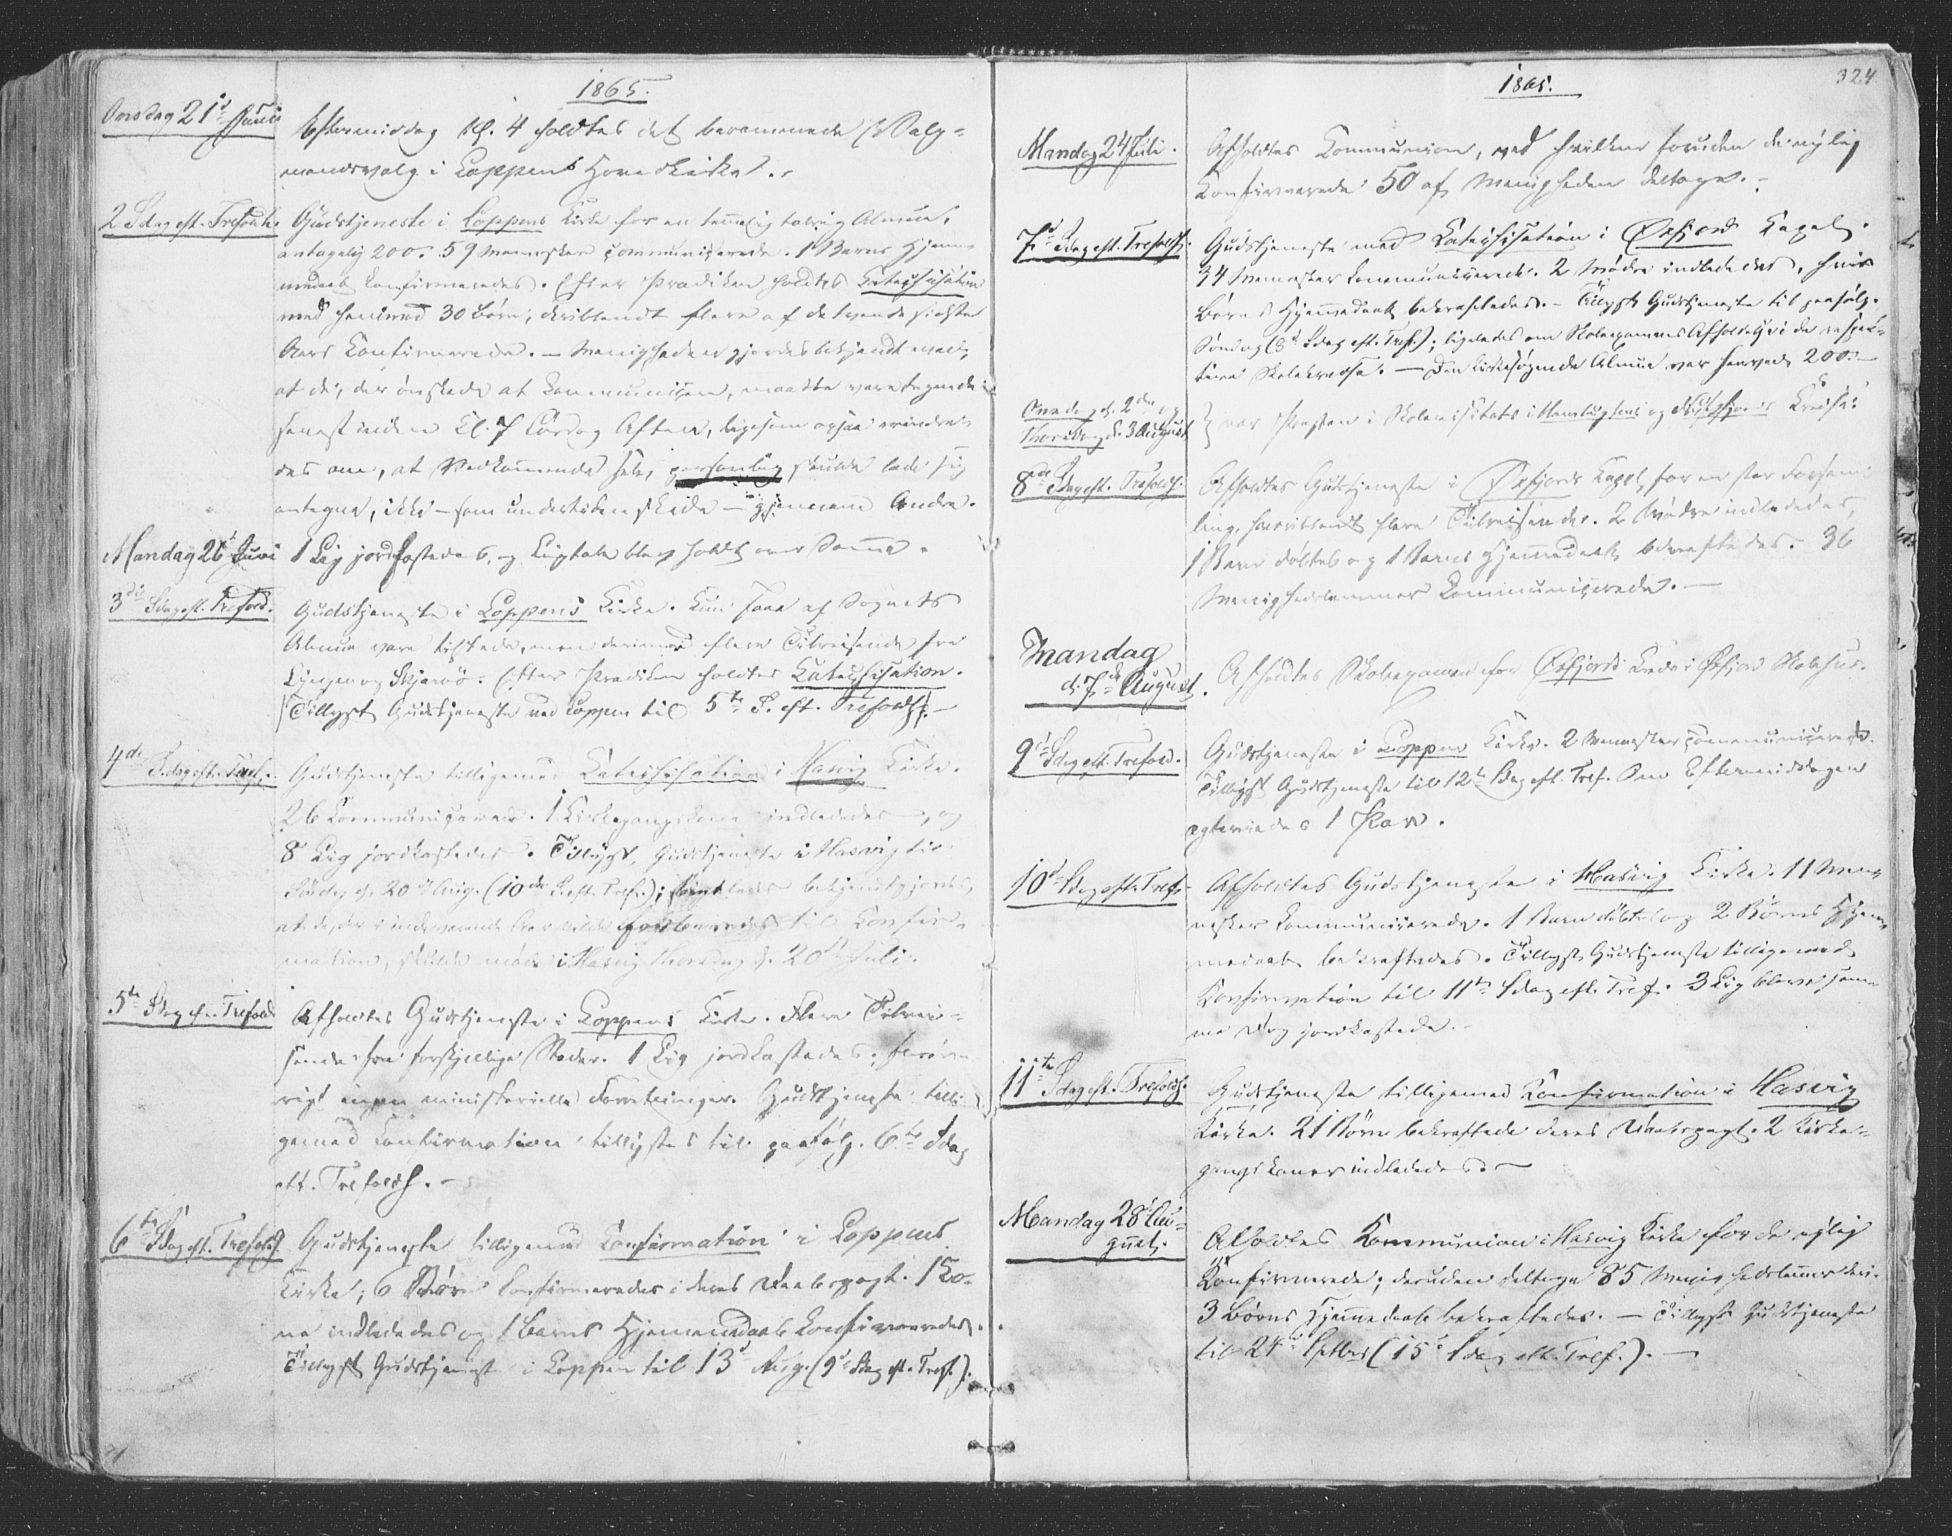 1865.
Onsdag 21d Juni
Eftermiddag Kl. 4 holdtes det berammede Valg-
mandsvalg i Loppens Hovedkirke.
2 Sdag eft. Trefoldh.
Gudstjeneste i Loppens Kirke for en temmelig talrig Almue,
antagelig 200. 59 Mennesker communicerede. 1 Barns Hjemme
daab confirmeredes. Efter Prædiken holdtes Catechisation
med henimod 30 Børn, deriblandt flere af de tvende sidste
Aars Confirmerede. — Menigheden gjordes bekjendt med,
at de, der ønskede at communicere, maatte være tegnede
senest inden Kl. 7 Lørdag Aften, ligesom ogsaa erindre-
des om, at Vedkommende selv personlig skulde lade sig
antegne, ikke – som undertiden skede – gjennem Andre.
Mandag 26d Juni
1 Lig jordfæstedes, og Ligtale blev holdt over Samme.
3die Sdag eft. Trefold.
Gudstjeneste i Loppens Kirke. Kun faa af Sognets
Almue vare tilstede, men derimod flere Tilreisende fra
Lyngen og Skjervø. Efter Prædiken holdtes Catechisation.
(Tillyst Gudstjeneste ved Loppen til 5te S. eft. Trefoldh.) —
4de Sdag eft. Tref.
Gudstjeneste tilligemed Catechisation i Hasvig Kirke.
26 Communicerede. 1 Kirkegangskone indledede, og
8 Lig jordkastedes. Tillyst Gudstjeneste i Hasvig til
Søndag d. 20d Aug. (10de S. eft. Tref.); bekjendtgjordes,
at de, der i indeværende Aar vilde forberedes til Confir-
mation, skulde møde i Hasvig Thorsdag d. 20d Juli.
5te Sdag eft. Trefold
Afholdtes Gudstjeneste i Loppens Kirke. Flere Tilrei-
sende fra forskjellige Steder. 1 Lig jordkastedes; forøv-
rigt ingen ministerielle Forretninger. Gudstjeneste tilli-
gemed Confirmation tillystes til paafølg. 6te Sdag
eft. Trefoldh. —
6te Sdag eft. Trefoldh.
Gudstjeneste tilligemed Confirmation i Loppens
Kirke; 6 Børn confirmeredes i deres Daabspagt. 1 Ko-
ne indlededes og 1 Barns Hjemmedaab confirmeredes.
Tillyst Gudstjeneste i Loppen til 13d Aug. (9d Sdag eft. Tref.).
1865.
324
Mandag 24 Juli.
Afholdtes Communion, ved hvilken foruden de nylig
Confirmerede 50 af Menigheden deltoge. —
7d Sdag eft. Trefoldh.
Gudstjeneste med Catechisation i Øxfjord Capel.
34 Mennesker communicerede. 2 Mødre indlededes, hvis
Børns Hjemmedaab bekræftedes. – Tillyst Gudstjeneste til paafølg.
Søndag (8d Sdag eft. Tref.); ligeledes om Skoleexamens Afholdelse i de respek-
tive Skolekredse. — Den kirkesøgende Almue var henved 200. —
Onsdag d. 2den og
Thorsdag d. 3 August
var Præsten i Skolevisitats i og Kredse.
8de Sdag eft. Trefoldh.
Afholdtes Gudstjeneste i Øxfjords Capel for en stor Forsam-
ling, hvoriblandt flere Tilreisende. 2 Mødre indlededes,
1 Barn døbtes og 1 Barns Hjemmedaab bekræftedes. 36
Menighedslemmer communicerede. —
Mandag
d. 7de August.
Afholdtes Skoleexamen for Øxfjords Kreds i Øxfjord Skolehus.
9d Sdag eft. Trefold.
Gudstjeneste i Loppen Kirke. 2 Mennesker communicerede.
Tillyst Gudstjeneste til 12te Sdag eft. Tref. Om Eftermiddagen
ægteviedes 1 Par.
10d Sdag eft. Tref.
Afholdtes Gudstjeneste i Hasvig Kirke. 11 Men-
nesker communicerede. 1 Barn døbtes og 2 Børns Hjem-
medaab bekræftedes. Tillyst Gudstjeneste tilligemed
Confirmation til 11te Sdag eft. Tref. 3 Lig bleve sam-
me Dag jordkastede. —
11te Sdag eft. Trefoldh.
Gudstjeneste tilligemed Confirmation i Hasvig
Kirke. 21 Børn bekræftede deres Daabspagt. 2 Kirke-
gangskoner indlededes. —
Mandag 28d Au-
gust.
Afholdtes Kommunion i Hasvig Kirke for de nylig
Confirmerede; desuden deltoge 85 Menighedslemmer deri.
3 Børns Hjemmedaab bekræftedes. — Tillyst Gudstjeneste
til 24d Septbr (15d Sdag eft. Tref.). —